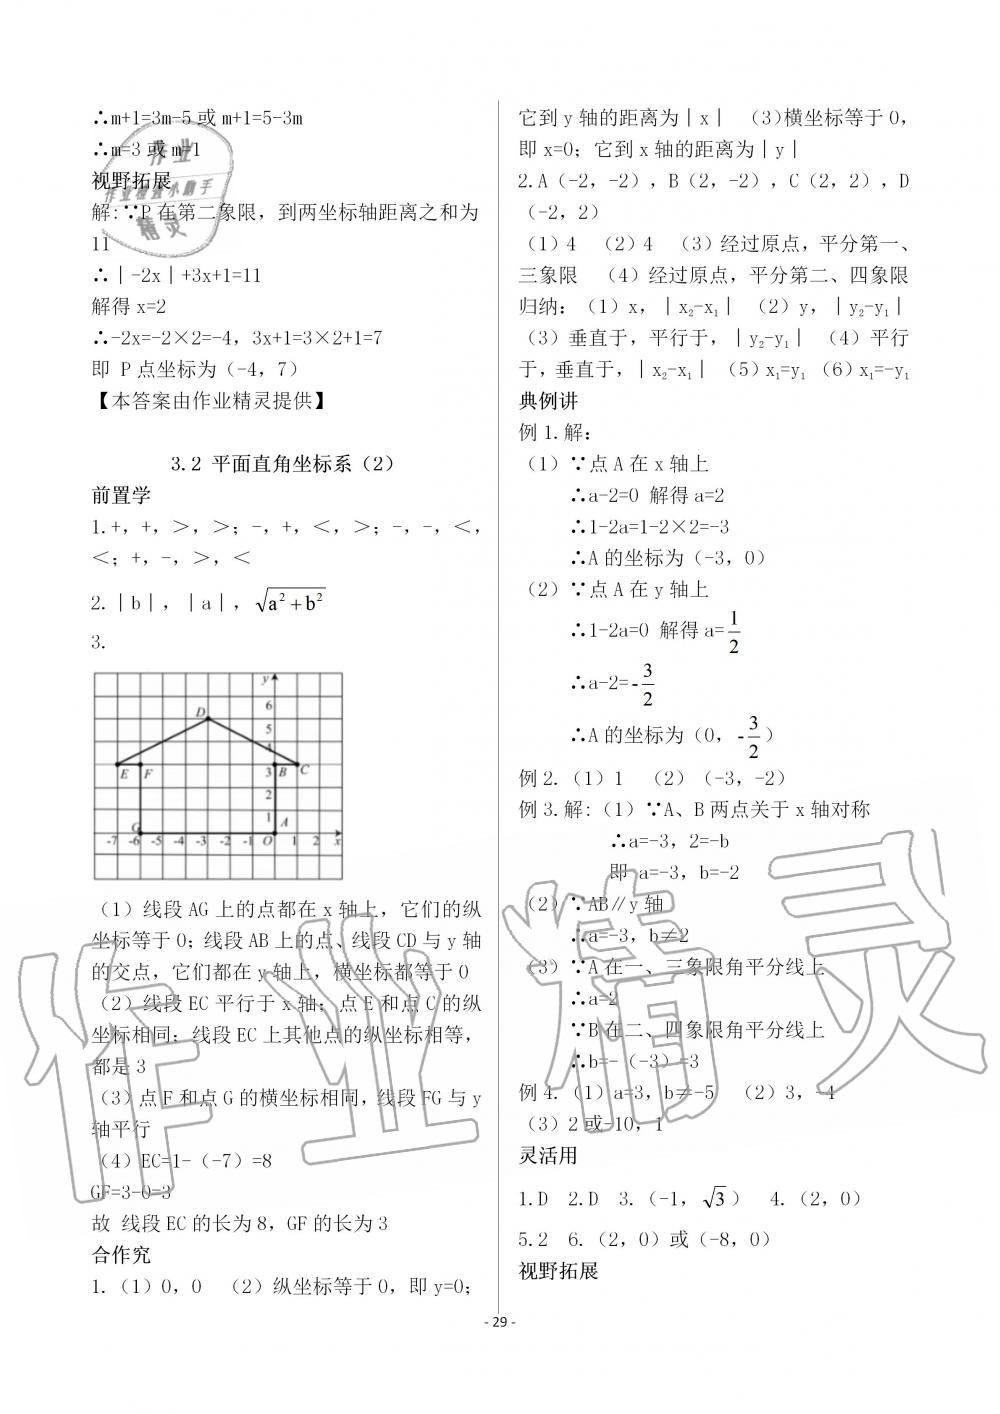 ∴m+1=3m-5 或 m+1=5-3m
∴m=3 或 m=1
视野拓展
解:∵P 在第二象限，到两坐标轴距离之和为
11
∴｜-2x｜+3x+1=11
解得 x=2
∴-2x=-2×2=-4，3x+1=3×2+1=7
即 P 点坐标为（-4，7）
【本答案由作业精灵提供】
3.2 平面直角坐标系（2）
前置学
1.+，+，＞，＞；-，+，＜，＞；-，-，＜，
＜；+，-，＞，＜
2.｜b｜，｜a｜，√(a²+b²)
3.
y
6
D
5
4
E F 3 B C
2
1
G A
-7 -6 -5 -4 -3 -2 -1 O 1 2 x
（1）线段 AG 上的点都在 x 轴上，它们的纵
坐标等于 0；线段 AB 上的点、线段 CD 与 y 轴
的交点，它们都在 y 轴上，横坐标都等于 0
（2）线段 EC 平行于 x 轴；点 E 和点 C 的纵
坐标相同；线段 EC 上其他点的纵坐标相等，
都是 3
（3）点 F 和点 G 的横坐标相同，线段 FG 与 y
轴平行
（4）EC=1-（-7）=8
GF=3-0=3
故 线段 EC 的长为 8，GF 的长为 3
合作究
1.（1）0，0 （2）纵坐标等于 0，即 y=0；
它到 y 轴的距离为｜x｜ （3）横坐标等于 0，
即 x=0；它到 x 轴的距离为｜y｜
2.A（-2，-2），B（2，-2），C（2，2），D
（-2，2）
（1）4 （2）4 （3）经过原点，平分第一、
三象限 （4）经过原点，平分第二、四象限
归纳：（1）x，｜x₂-x₁｜ （2）y，｜y₂-y₁｜
（3）垂直于，平行于，｜y₂-y₁｜ （4）平行
于，垂直于，｜x₂-x₁｜ （5）x₁=y₁ （6）x₁=-y₁
典例讲
例 1.解：
（1）∵点 A 在 x 轴上
∴a-2=0 解得 a=2
∴1-2a=1-2×2=-3
∴A 的坐标为（-3，0）
（2）∵点 A 在 y 轴上
∴1-2a=0 解得 a=1/2
∴a-2=-3/2
∴A 的坐标为（0，-3/2）
例 2.（1）1 （2）（-3，-2）
例 3.解:（1）∵A、B 两点关于 x 轴对称
∴a=-3，2=-b
即 a=-3，b=-2
（2）∵AB∥y 轴
∴a=-3，b≠2
（3）∵A 在一、三象限角平分线上
∴a=2
∵B 在二、四象限角平分线上
∴b=-（-3）=3
例 4.（1）a=3，b≠-5 （2）3，-4
（3）2 或-10，1
灵活用
1.D 2.D 3.（-1，√3） 4.（2，0）
5.2 6.（2，0）或（-8，0）
视野拓展
- 29 -
作业
作业检查小助手
精灵
作业精灵